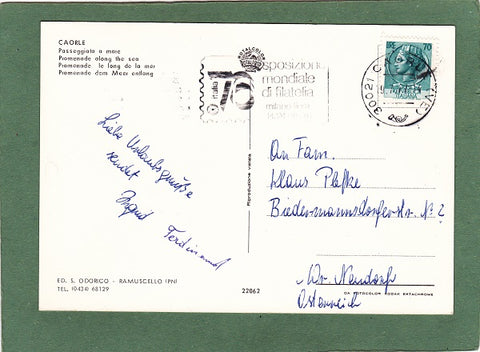 CAORLE
Passeggiata a mare
Promenade along the sea
Promenade le long de la mer
Promenade dem Meer entlang
italia
esposizione
mondiale
di filatelia
milano
30021 CAORLE (VE)
70
Liebe Urlaubsgrüße
sendet
Ferdinand
Riproduzione vietata
An Fam.
Klaus Plefke
Biedermannsdorferstr. № 2
Wr. Neudorf
Österreich
ED. S. ODORICO - RAMUSCELLO (PN)
TEL. (0434) 68129
22062
DA FOTOCOLOR KODAK EKTACHROME